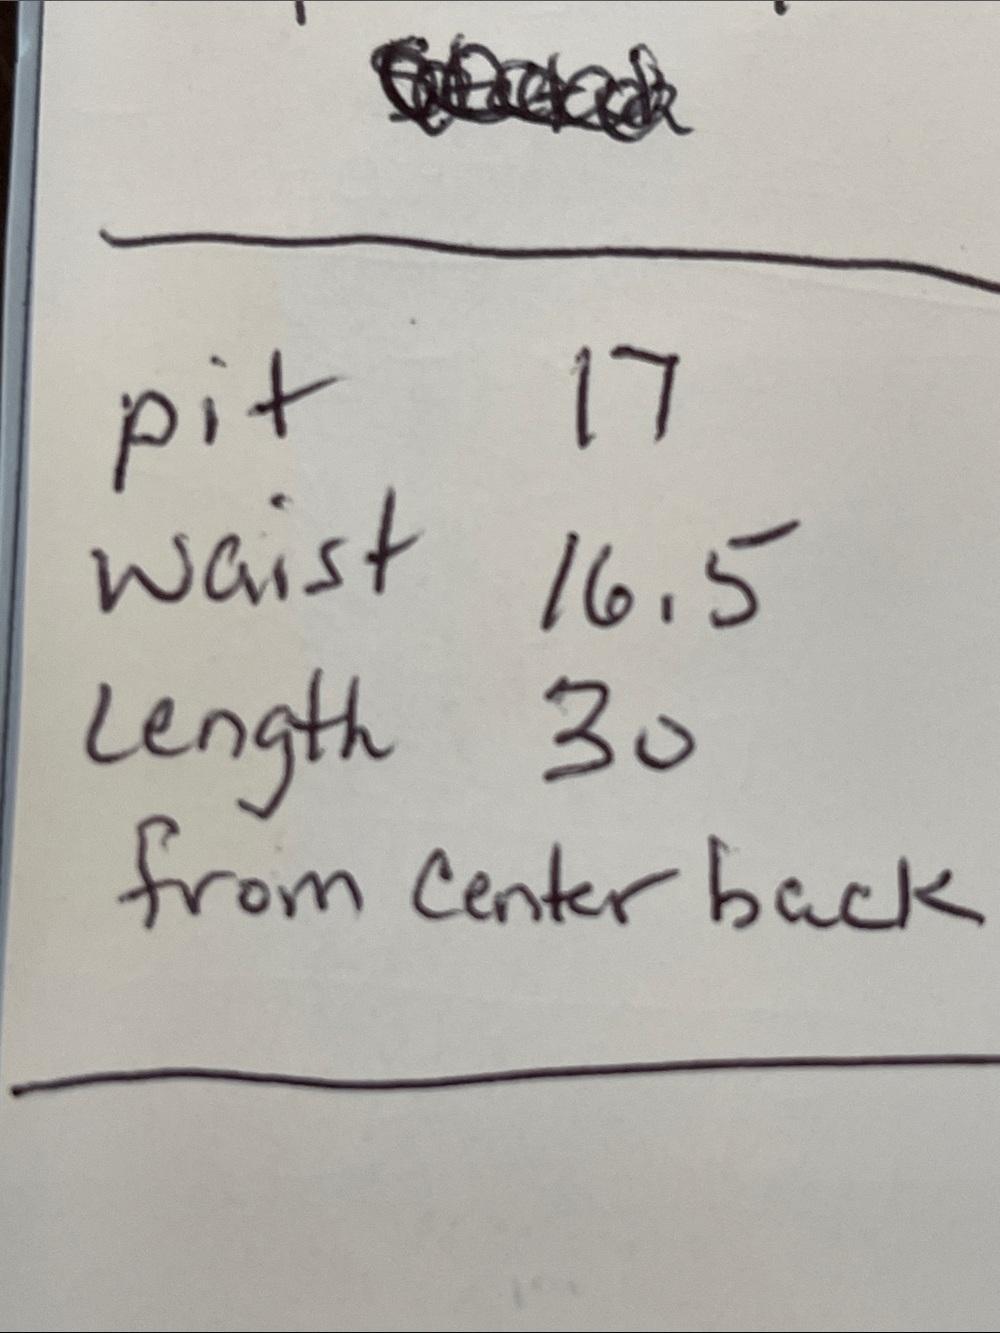 pit 17
waist 16.5
Length 30
from center back